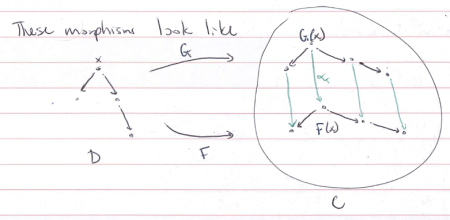 These morphisms look like
G
G(x)
x
αₓ
F(x)
D
F
C